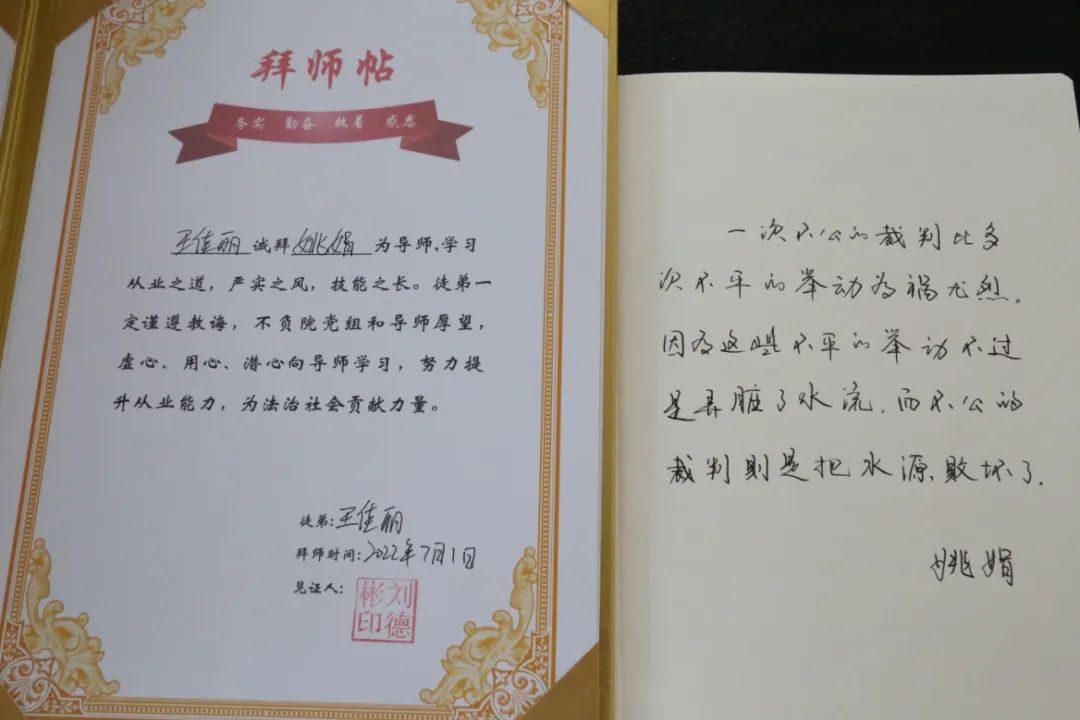 拜师帖
务实 勤奋 执着 感恩
王佳丽 诚拜 姚娟 为导师,学习
从业之道，严实之风，技能之长。徒弟一
定谨遵教诲，不负院党组和导师厚望，
虚心、用心、潜心向导师学习，努力提
升从业能力，为法治社会贡献力量。
徒弟:王佳丽
拜师时间:2022年7月1日
见证人:
刘德彬印
一次不公的裁判比多
次不平的举动为祸尤烈。
因为这些不平的举动不过
是弄脏了水流,而不公的
裁判则是把水源败坏了.
姚娟